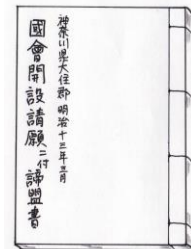 神奈川県大住郡 明治十三年三月
國會開設請願ニ付 諦盟書